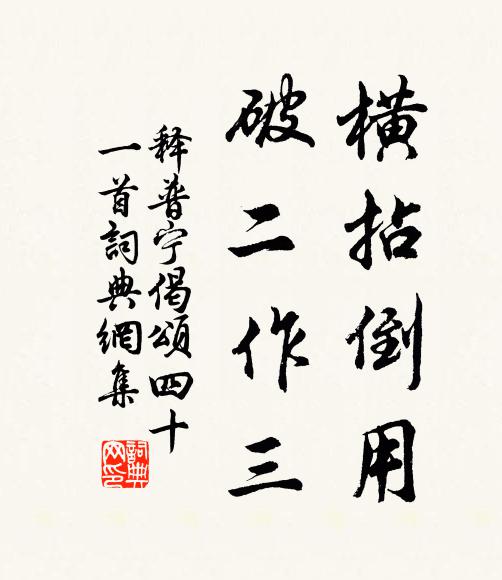 横拈倒用
破二作三
释普宁偈颂四十
一首詞典網集
詞典
网印